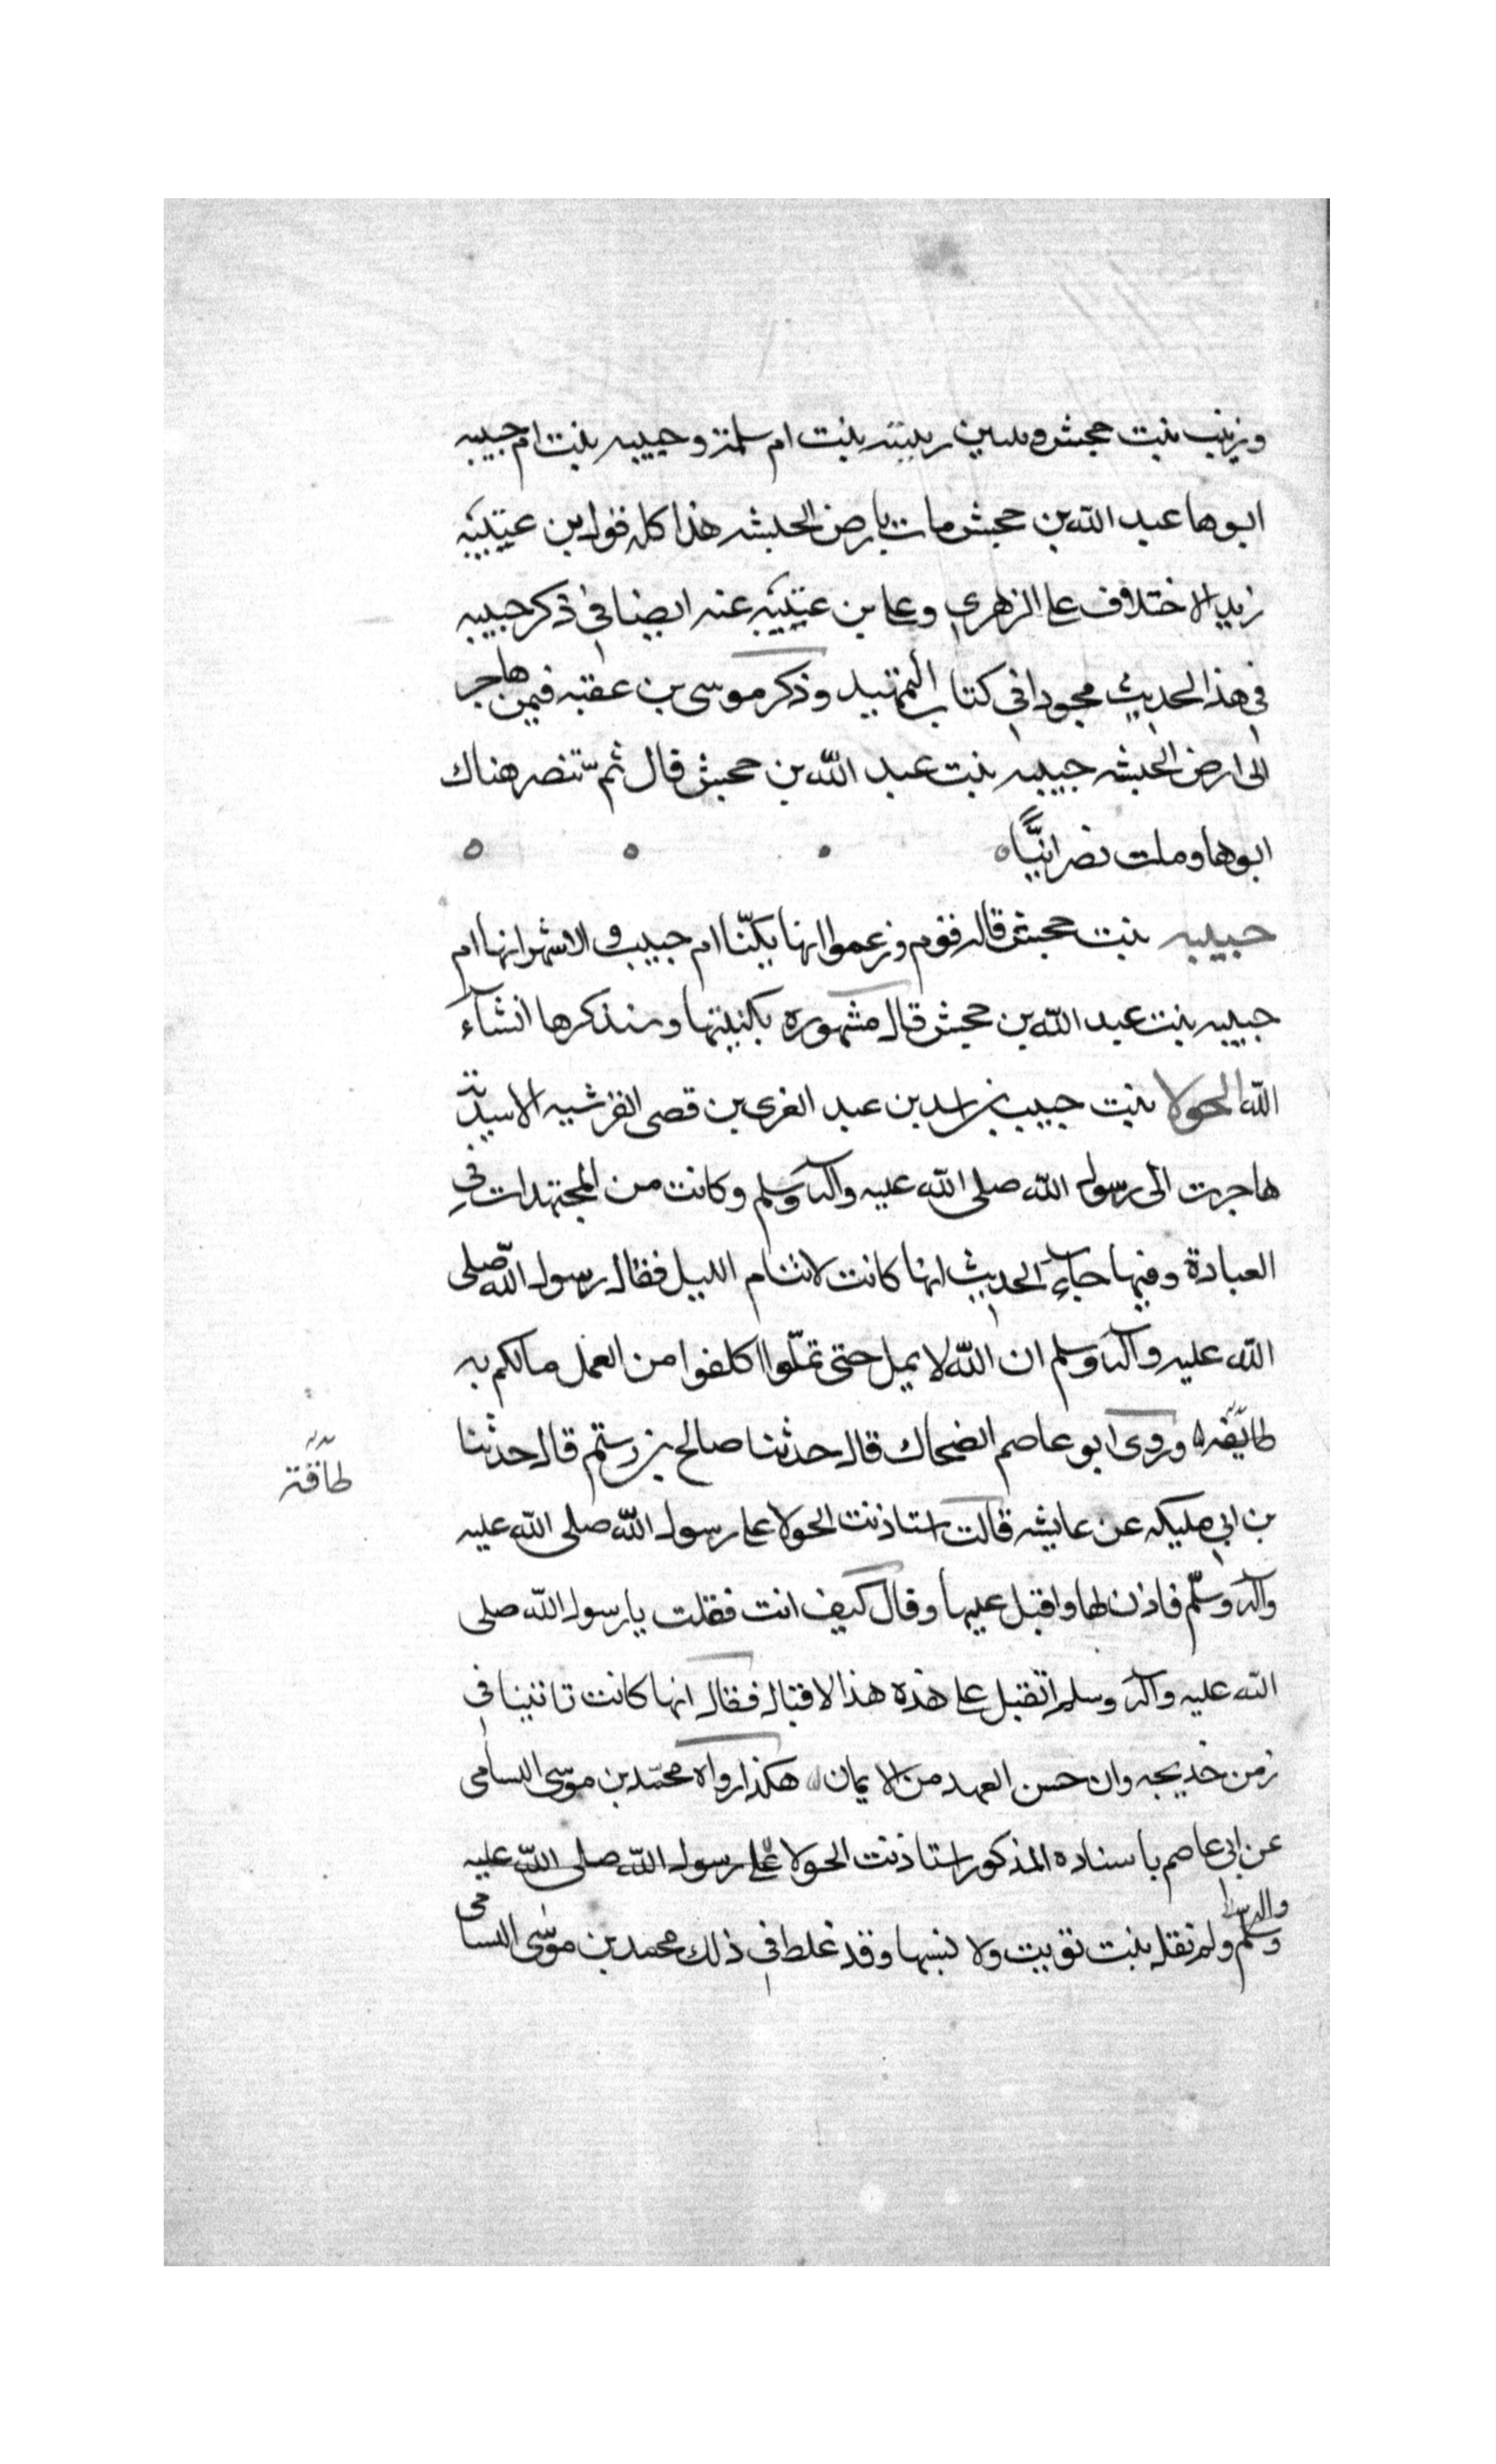 وزينب بنت جحش وبنتين ربيبته بنت ام سلمة وحبيبه بنت ام حبيبه
ابوها عبد الله بن جحش مات بارض الحبشه هذا كله قول بن عيينه
الاختلاف على الزهري وعلى بن عيينه عنه ايضا في ذكر حبيبه
في هذا الحديث مجودا في كتاب التمهيد وذكر موسى بن عقبه فيمن هاجر
الى ارض الحبشه حبيبه بنت عبد الله بن جحش قال ثم تنصر هناك
ابوها ومات نصرانيًّا
حبيبه بنت جحش قاله قوم وزعموا انها يكنّا ام حبيب والاشهر انها ام
حبيبه بنت عبد الله بن جحش قال مشهوره بكنيتها وسنذكرها انشآء
الله الحولا بنت حبيب بن اسد بن عبد العزى بن قصى القرشيه الاسديّة
هاجرت الى رسول الله صلى الله عليه وآله وسلم وكانت من المجتهدات في
العبادة وفيها جاء الحديث انها كانت لا تنام الليل فقال رسول الله صلى
الله عليه وآله وسلم ان الله لا يمل حتى تملّوا اكلفوا من العمل مالكم به
طايقه وروى ابو عاصم الضحاك قال حدثنا صالح بن رستم قال حدثنا
طاقة
بن ابي مليكه عن عايشه قالت استاذنت الحولا على رسول الله صلى الله عليه
وآله وسلّم فاذن لها واقبل عليها وقال كيف انت فقلت يا رسول الله صلى
الله عليه وآله وسلم اتقبل على هذه هذا الاقبال فقال انها كانت تاتينا في
زمن خديجه وان حسن العهد من الايمان هكذا رواه محمّد بن موسى السامى
عن ابى عاصم باسناده المذكور استاذنت الحولا على رسول الله صلى الله عليه
وآله وسلم ولم نقل بنت تويت ولا نسبها وقد غلط في ذلك محمد بن موسى السامى